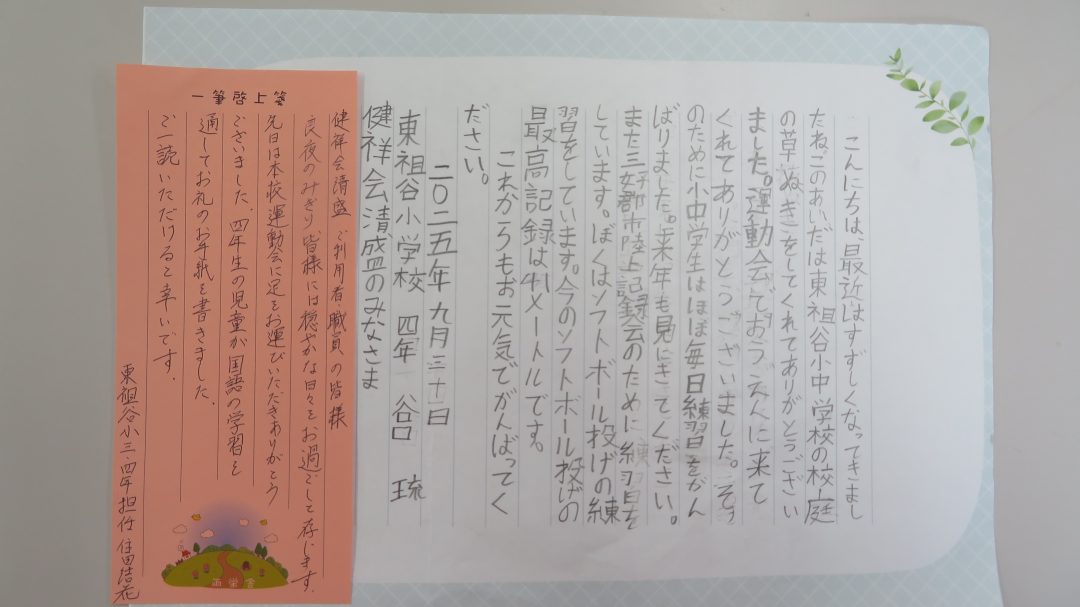 こんにちは、最近はすずしくなってきまし
たね。このあいだは東祖谷小中学校の校庭
の草ぬきをしてくれてありがとうござい
ました。運動会でおうえんに来て
くれてありがとうございました。そ
のために小中学生はほぼ毎日練習をがん
ばりました。来年も見にきてください。
また三好郡市陸上記録会のために練習を
しています。ぼくはソフトボール投げの練
習をしています。今のソフトボール投げの
最高記録は41メートルです。
これからもお元気でがんばってく
ださい。
二〇二五年九月三十日
東祖谷小学校 四年 谷口 琉
健祥会清盛のみなさま
一筆啓上箋
健祥会清盛 ご利用者・職員の皆様
良夜のみぎり、皆様には穏やかな日々をお過ごしと存じます。
先日は本校運動会に足をお運びいただきありがとう
ございました。四年生の児童が国語の学習を
通してお礼のお手紙を書きました。
ご一読いただけると幸いです。
東祖谷小三・四年担任 住田